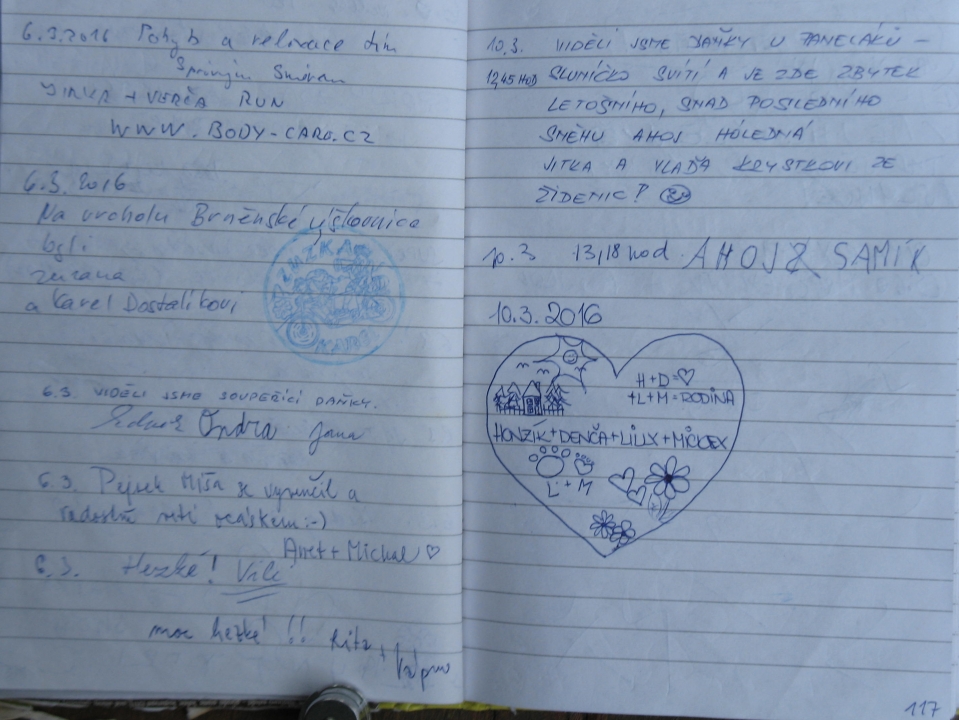 6.3.2016 Pohyb a relaxace tím
Správným Směrem
JIRKA + VERČA RUN
WWW.BODY-CARO.CZ
6.3.2016
Na vrcholu Brněnské výškovnice
byli
zuzana
a Karel Dostalíkovi
6.3. VIDĚLI JSME SOUPEŘÍCÍ DAŇKY.
Ondra Jana
6.3. Pejsek Míša se vyvenčil a
radostně vrtí ocáskem :-)
Anet + Michal ♡
6.3. Hezké!
moc hezké !! Rita +
10.3. VIDĚLI JSME DAŇKY U PANELÁKŮ –
12,45 HOD SLUNÍČKO SVÍTÍ A JE ZDE ZBYTEK
LETOŠNÍHO, SNAD POSLEDNÍHO
SNĚHU AHOJ HOLEDNÁ
JITKA A VLAĎA KRYSTKOVI ZE
ŽIDENIC!
10.3 13,18 hod AHOJ Z SAMÍK
10.3.2016
H+D=♡
+L+M=RODINA
HONZÍK+DENČA+LILIX+MICKEX
L+M
117